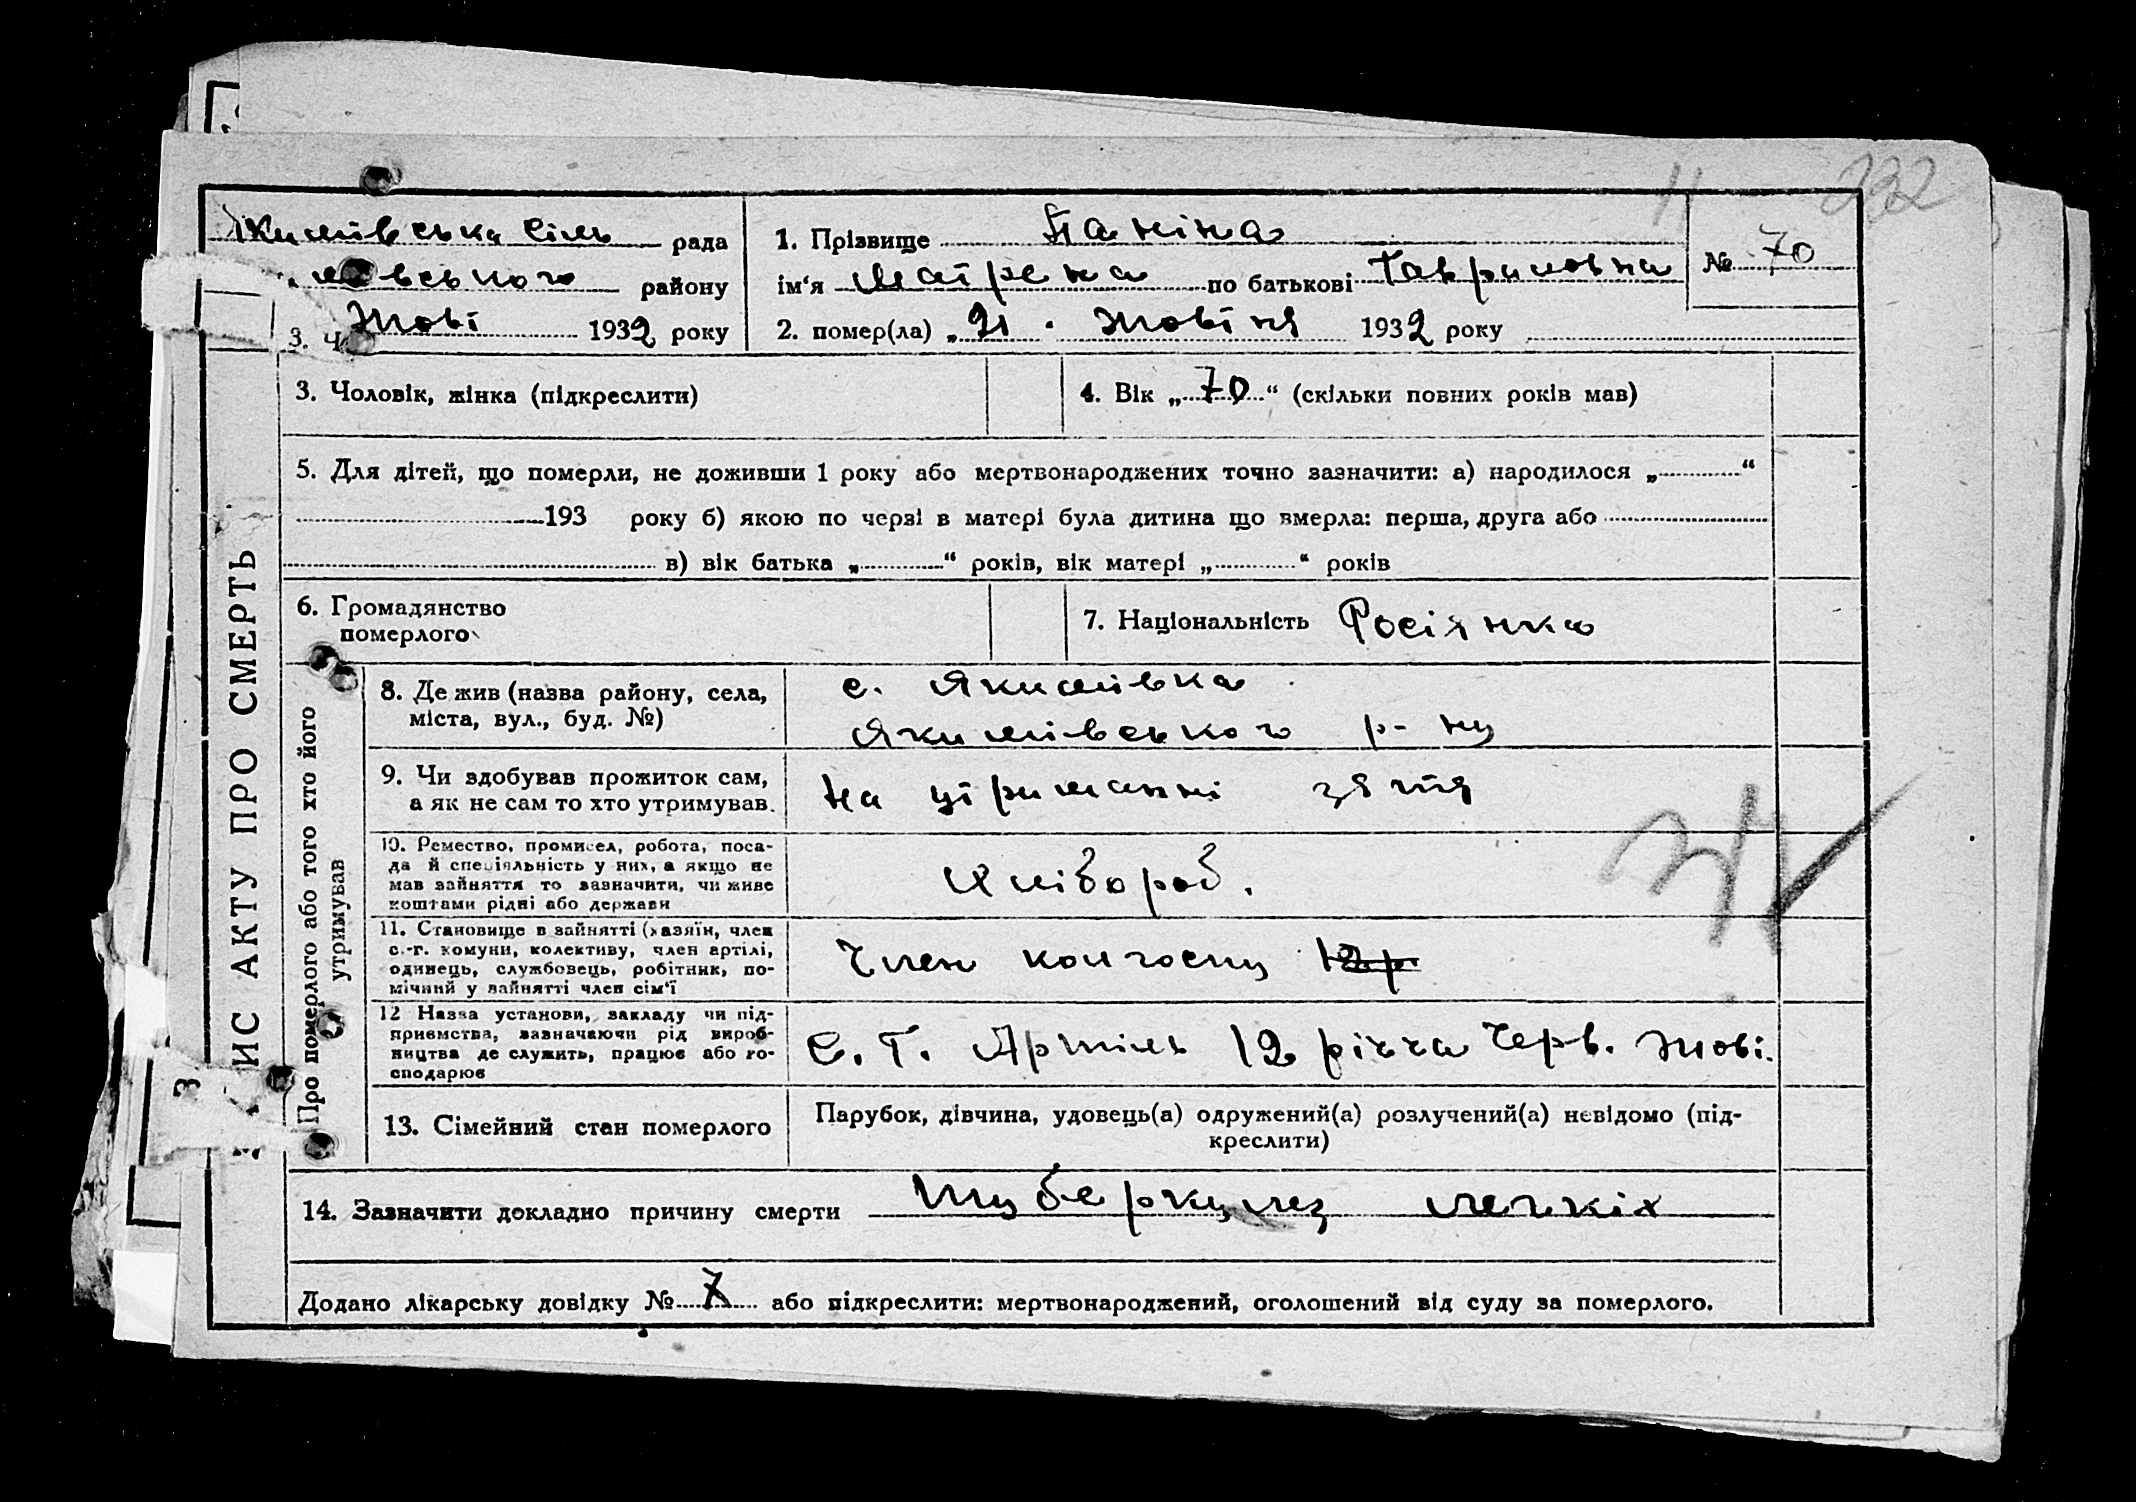 11 232
Якимівська сіль рада
мівського району
3. Ч Жовт 1932 року
1. Прізвище Паніна
ім‘я Матрена по батькові Гавриловна
№ 70
2. помер(ла) „21 . жовтня 1932 року
3. Чоловік, жінка (підкреслити)
4. Вік „70“ (скільки повних років мав)
5. Для дітей, що померли, не доживши 1 року або мертвонароджених точно зазначити: а) народилося „ “
193 року б) якою по черзі в матері була дитина що вмерла: перша, друга або
в) вік батька „ “ років, вік матері „ “ років
6. Громадянство
померлого
7. Національність Росіянка
ИС АКТУ ПРО СМЕРТЬ
З
Про померлого або того хто його
утримував
8. Де жив (назва району, села,
міста, вул., буд. №)
с. Якимівка
Якимівського р-ну
9. Чи здобував прожиток сам,
а як не сам то хто утримував.
на утриманні зятя
10. Ремество, промисел, робота, поса-
да й спеціяльність у них, а якщо не
мав зайняття то зазначити, чи живе
коштами рідні або держави
Хлібороб.
11. Становище в зайнятті (хазяїн, член
с.-г. комуни, колективу, член артілі,
одинець, службовець, робітник, по-
мічний у зайнятті член сім‘ї
Член колгоспу 12 р
12 Назва установи, закладу чи під-
приємства, зазначаючи рід вироб-
ництва де служить, працює або го-
сподарює
С. Г. Артіль 12 річча Черв. Жовт.
13. Сімейний стан померлого
Парубок, дівчина, удовець(а) одружений(а) розлучений(а) невідомо (під-
креслити)
14. Зазначити докладно причину смерти Туберкулез легких
Додано лікарську довідку № 7 або підкреслити: мертвонароджений, оголошений від суду за померлого.